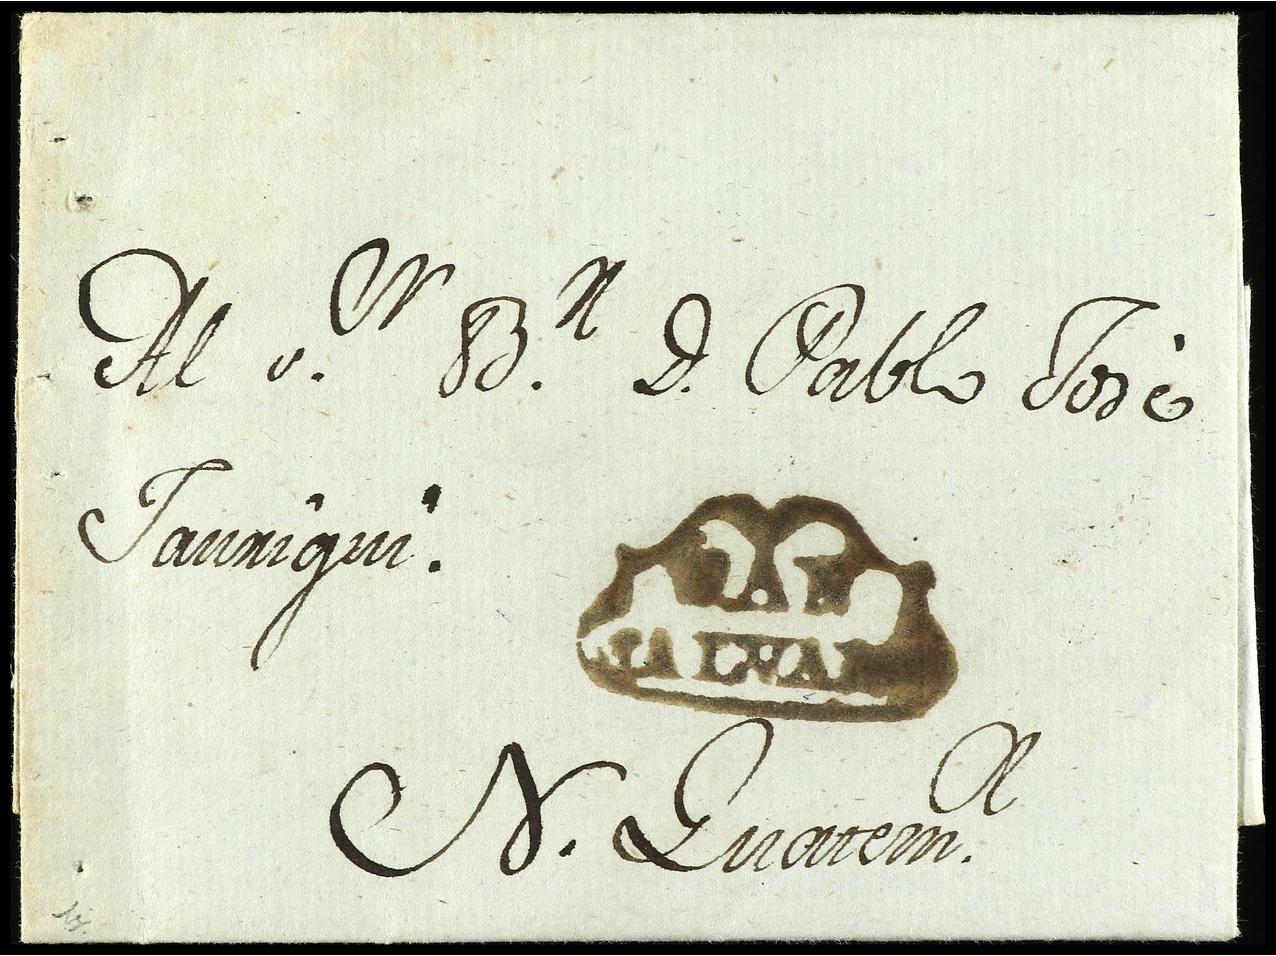 Al s.or B.r D. Pablo José
Jauregui.
SAN
SALVAD
N. Guatem.a